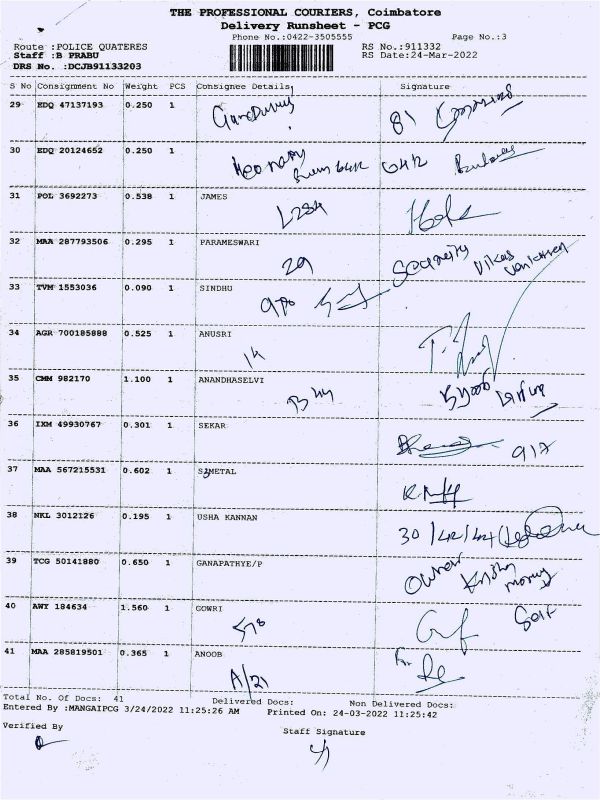 THE PROFESSIONAL COURIERS, Coimbatore
Delivery Runsheet - PCG
Phone No.:0422-3505555 Page No.:3
Route :POLICE QUATERES RS No.:911332
Staff :B PRABU RS Date:24-Mar-2022
DRS No. :DCJB91133203
S No Consignment No Weight PCS Consignee Details Signature
29 EDQ 47137193 0.250 1
81
30 EDQ 20124652 0.250 1
31 POL 3692273 0.538 1 JAMES
L284
32 MAA 287793506 0.295 1 PARAMESWARI
29 Security Vikas
33 TVM 1553036 0.090 1 SINDHU
34 AGR 700185888 0.525 1 ANUSRI
35 CMM 982170 1.100 1 ANANDHASELVI
36 IXM 49930767 0.301 1 SEKAR
917
37 MAA 567215531 0.602 1 SIMETAL
38 NKL 3012126 0.195 1 USHA KANNAN
39 TCG 50141880 0.650 1 GANAPATHYE/P
Owner
40 AWY 184634 1.560 1 GOWRI
578 Self
41 MAA 285819501 0.365 1 ANOOB
A/21
Total No. Of Docs: 41 Delivered Docs: Non Delivered Docs:
Entered By :MANGAIPCG 3/24/2022 11:25:26 AM Printed On: 24-03-2022 11:25:42
Verified By Staff Signature